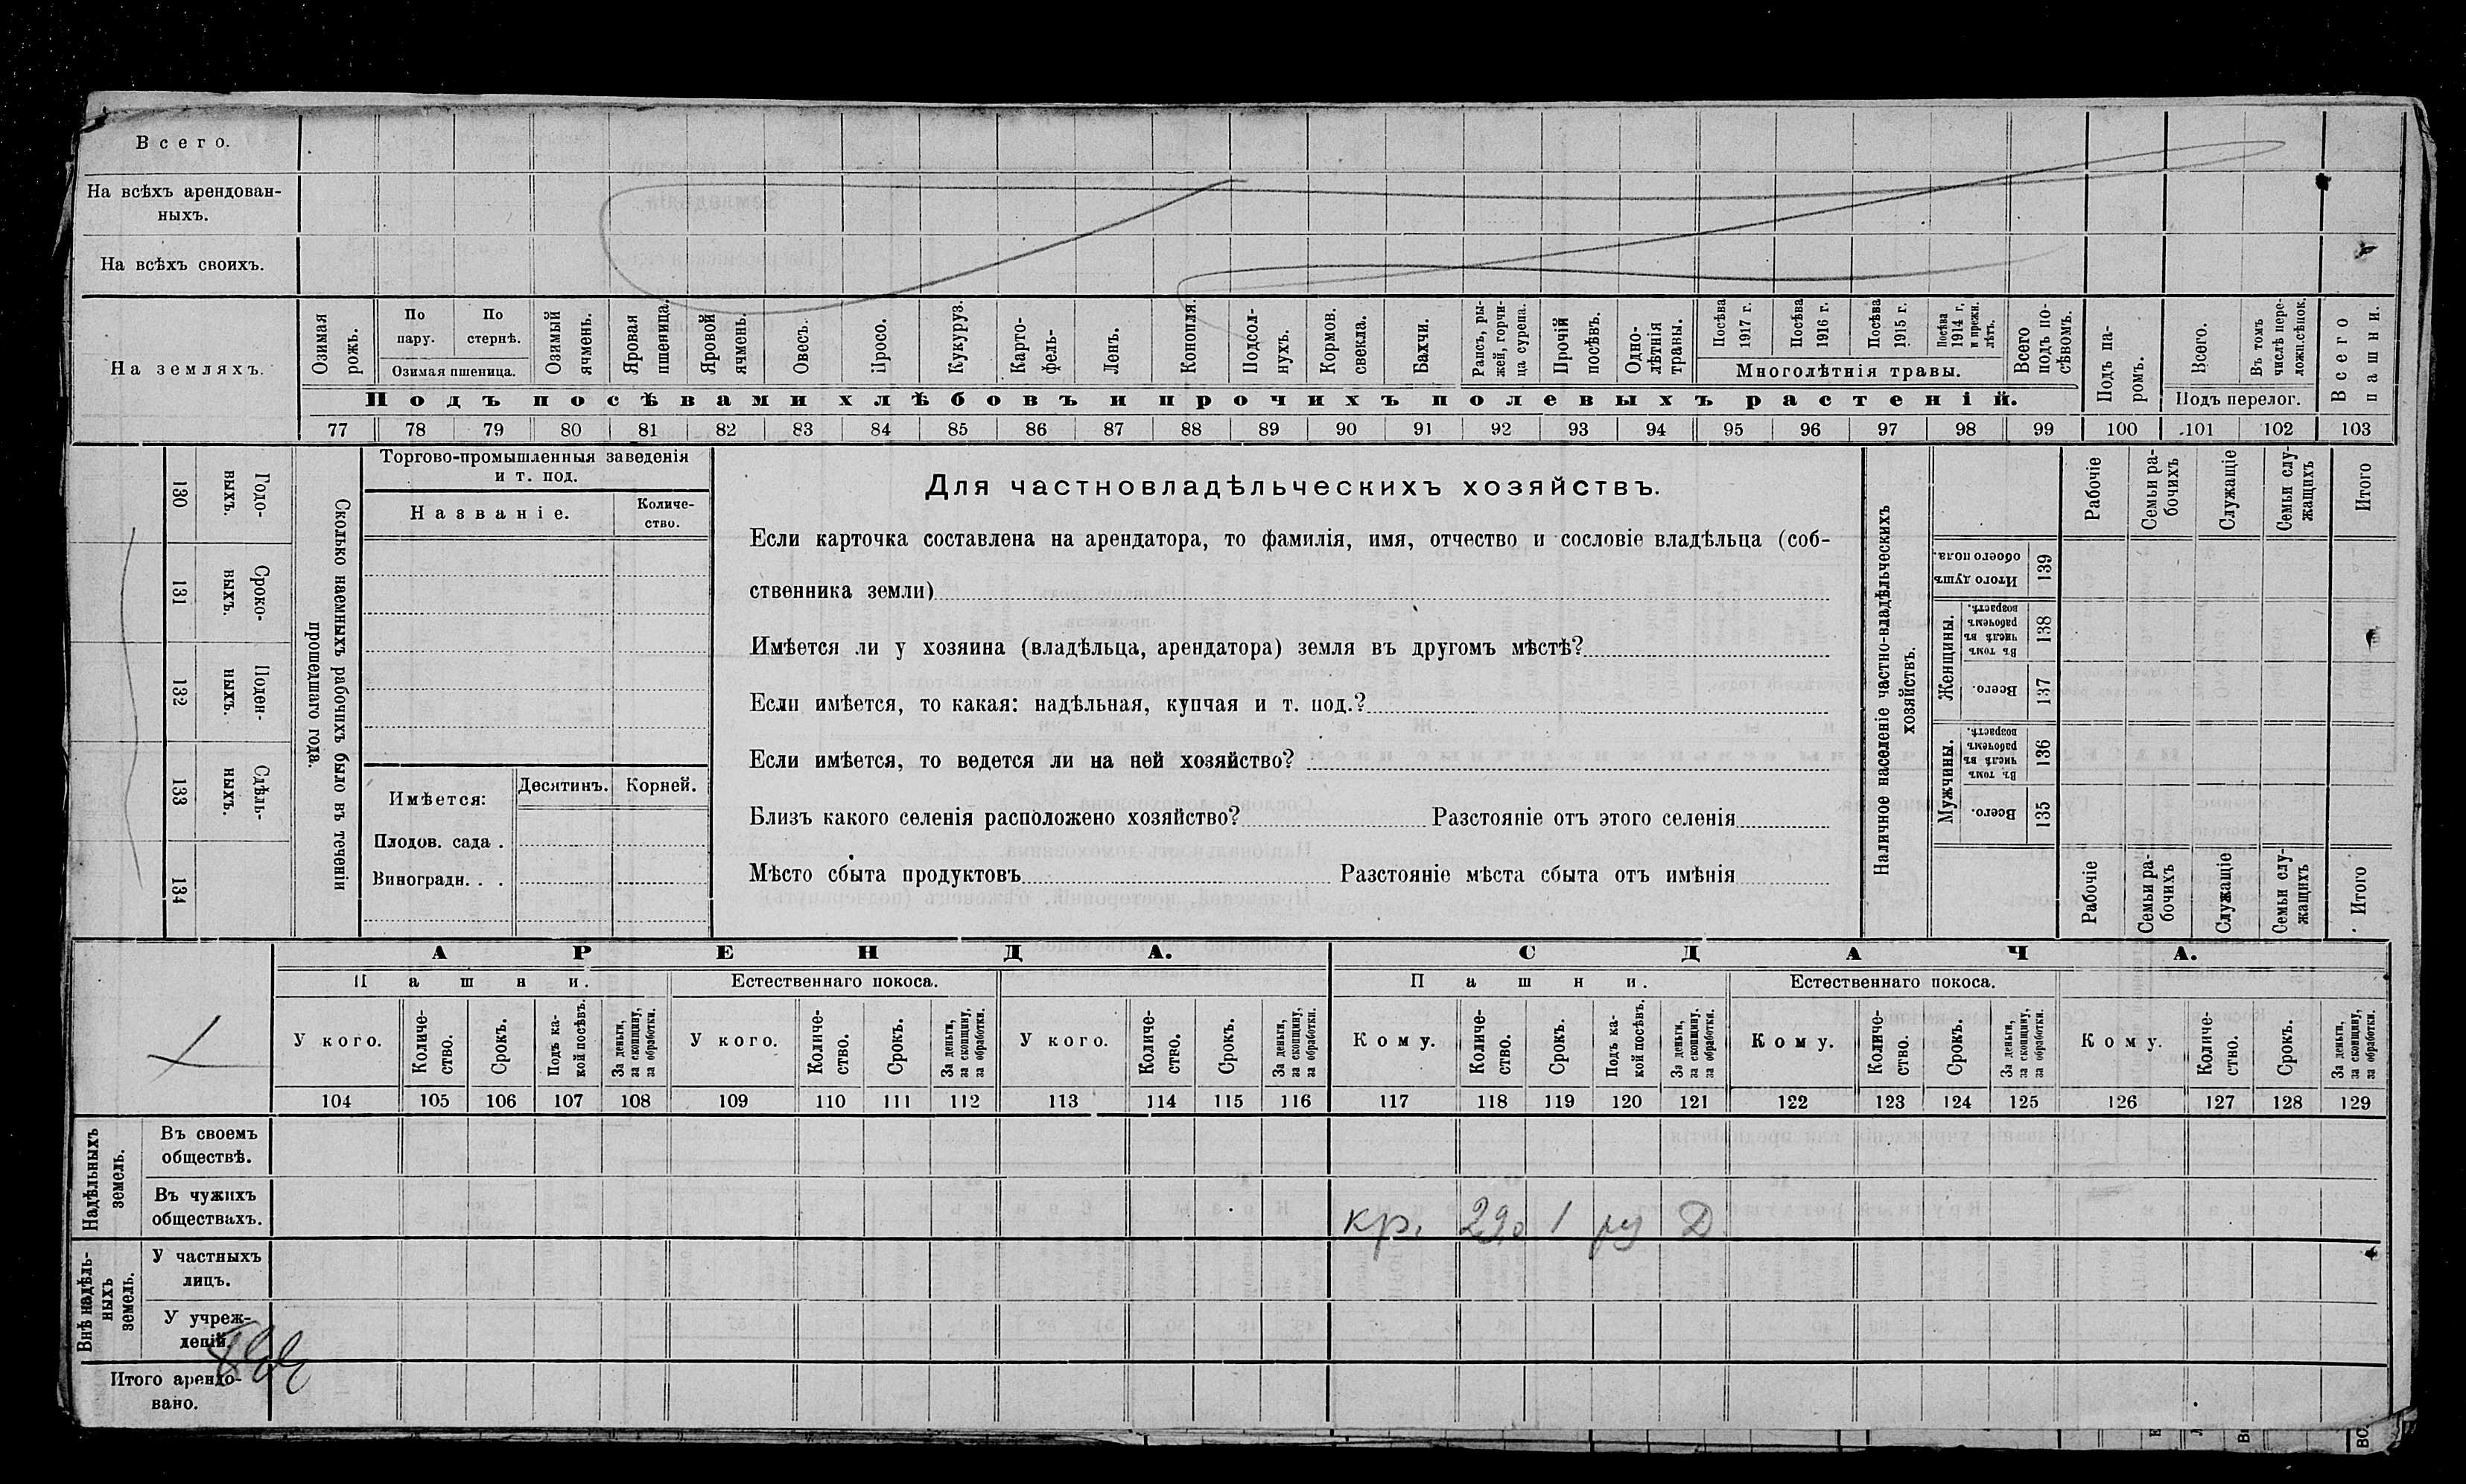 Всего.
На всѣхъ арендован-
ныхъ.
На всѣхъ своихъ.
На земляхъ.
Озимая рожь.
По пару.
По стернѣ.
Озимая пшеница.
Озимый ячмень.
Яровая пшеница.
Яровой ячмень.
Овесъ.
Просо.
Кукуруз.
Карто-
фель-
Ленъ.
Конопля.
Подсол-
нухъ.
Кормов. свекла.
Бахчи.
Рапсъ, ры-
жей, горчи-
ца сурепа.
Прочій посѣвъ.
Одно-
лѣтнія травы.
Посѣва 1917 г.
Посѣва 1916 г.
Посѣва 1915 г.
Посѣва 1914 г. и прежн. лѣтъ.
Многолѣтнія травы.
Всего подъ по-
сѣвомъ.
Подъ посѣвами хлѣбовъ и прочихъ полевыхъ растеній.
Подъ па-
ромъ.
Всего.
Въ томъ числѣ пере-
ложн.сѣнок.
Подъ перелог.
Всего пашни.
77 78 79 80 81 82 83 84 85 86 87 88 89 90 91 92 93 94 95 96 97 98 99 100 101 102 103
130 Годо-
ныхъ.
131 Сроко-
ныхъ.
132 Поден-
ныхъ.
133 Сдѣль-
ныхъ.
134
Сколько наемныхъ рабочихъ было въ теченіи
прошедшаго года.
Торгово-промышленныя заведенія
и т. под.
Названіе.
Количе-
ство.
Имѣется:
Десятинъ.
Корней.
Плодов. сада .
Виноградн. . .
Для частновладѣльческихъ хозяйствъ.
Если карточка составлена на арендатора, то фамилія, имя, отчество и сословіе владѣльца (соб-
ственника земли)
Имѣется ли у хозяина (владѣльца, арендатора) земля въ другомъ мѣстѣ?
Если имѣется, то какая: надѣльная, купчая и т. под.?
Если имѣется, то ведется ли на ней хозяйство?
Близъ какого селенія расположено хозяйство? Разстояніе отъ этого селенія
Мѣсто сбыта продуктовъ Разстояніе мѣста сбыта отъ имѣнія
Наличное населеніе частно-владѣльческихъ
хозяйствъ.
Рабочіе
Семьи ра-
бочихъ
Служащіе
Семьи слу-
жащихъ
Итого
Итого душъ обоего пола. 139
Женщины.
Въ томъ числѣ въ рабочемъ возрастѣ. 138
Всего. 137
Мужчины.
Въ томъ числѣ въ рабочемъ возрастѣ. 136
Всего. 135
Рабочіе
Семьи ра-
бочихъ
Служащіе
Семьи слу-
жащихъ
Итого
АРЕНДА.
СДАЧА.
Пашни.
Естественнаго покоса.
Пашни.
Естественнаго покоса.
У кого.
Количе-
ство.
Срокъ.
Подъ ка-
кой посѣвъ.
За деньги, за скопщину, за обработки.
У кого.
Количе-
ство.
Срокъ.
За деньги, за скопщину, за обработки.
У кого.
Количе-
ство.
Срокъ.
За деньги, за скопщину, за обработки.
Кому.
Количе-
ство.
Срокъ.
Подъ ка-
кой посѣвъ.
За деньги, за скопщину, за обработки.
Кому.
Количе-
ство.
Срокъ.
За деньги, за скопщину, за обработки.
Кому.
Количе-
ство.
Срокъ.
За деньги, за скопщину, за обработки.
104 105 106 107 108 109 110 111 112 113 114 115 116 117 118 119 120 121 122 123 124 125 126 127 128 129
Надѣльныхъ
земель.
Въ своемъ
обществѣ.
Въ чужихъ
обществахъ.
кр. 1 Д
Внѣ надѣль-
ныхъ
земель.
У частныхъ
лицъ.
У учреж-
деній.
Итого арендо-
вано.